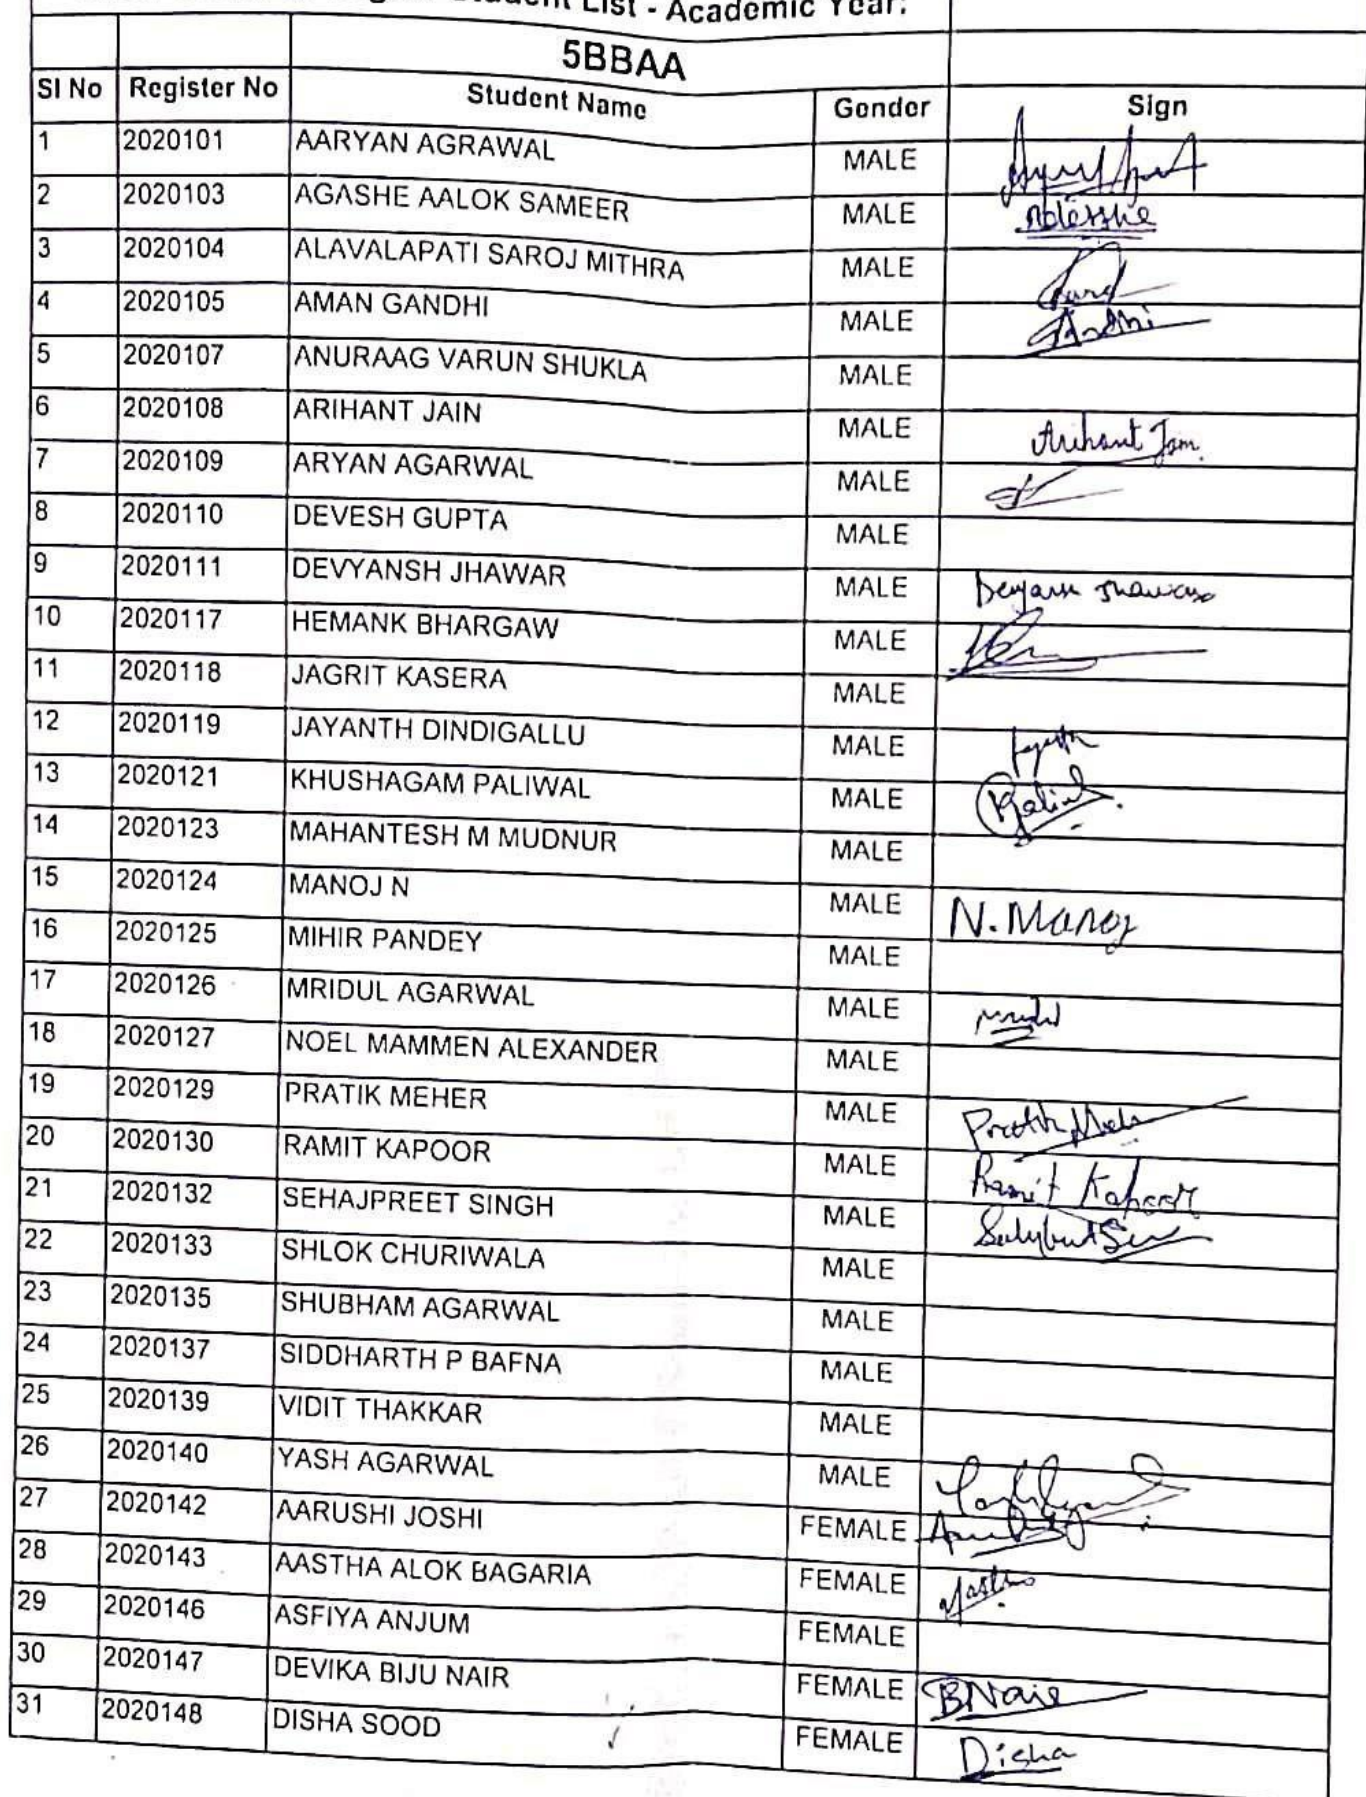 Student List - Academic Year:
5BBAA
SI No Register No Student Name Gender Sign
1 2020101 AARYAN AGRAWAL MALE
2 2020103 AGASHE AALOK SAMEER MALE
3 2020104 ALAVALAPATI SAROJ MITHRA MALE
4 2020105 AMAN GANDHI MALE
5 2020107 ANURAAG VARUN SHUKLA MALE
6 2020108 ARIHANT JAIN MALE Arihant Jain
7 2020109 ARYAN AGARWAL MALE
8 2020110 DEVESH GUPTA MALE
9 2020111 DEVYANSH JHAWAR MALE
10 2020117 HEMANK BHARGAW MALE
11 2020118 JAGRIT KASERA MALE
12 2020119 JAYANTH DINDIGALLU MALE
13 2020121 KHUSHAGAM PALIWAL MALE
14 2020123 MAHANTESH M MUDNUR MALE
15 2020124 MANOJ N MALE N. Manoj
16 2020125 MIHIR PANDEY MALE
17 2020126 MRIDUL AGARWAL MALE
18 2020127 NOEL MAMMEN ALEXANDER MALE
19 2020129 PRATIK MEHER MALE
20 2020130 RAMIT KAPOOR MALE Ramit Kapoor
21 2020132 SEHAJPREET SINGH MALE
22 2020133 SHLOK CHURIWALA MALE
23 2020135 SHUBHAM AGARWAL MALE
24 2020137 SIDDHARTH P BAFNA MALE
25 2020139 VIDIT THAKKAR MALE
26 2020140 YASH AGARWAL MALE
27 2020142 AARUSHI JOSHI FEMALE
28 2020143 AASTHA ALOK BAGARIA FEMALE
29 2020146 ASFIYA ANJUM FEMALE
30 2020147 DEVIKA BIJU NAIR FEMALE BNair
31 2020148 DISHA SOOD FEMALE Disha